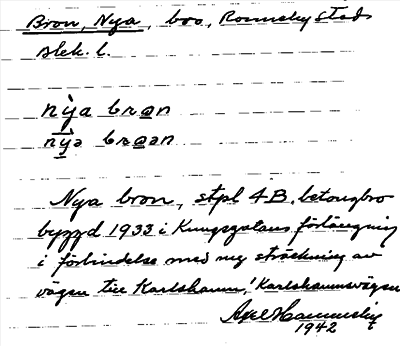 Bron, Nya, bro, Ronneby stad
Blek. l.
nỳa bron
nȳa broan
Nya bron, stpl 4B, betongbro
byggd 1933 i Kungsgatans förlängning
i förbindelse med ny sträckning av
vägen till Karlshamn, Karlshamnsvägen
Axel
1942